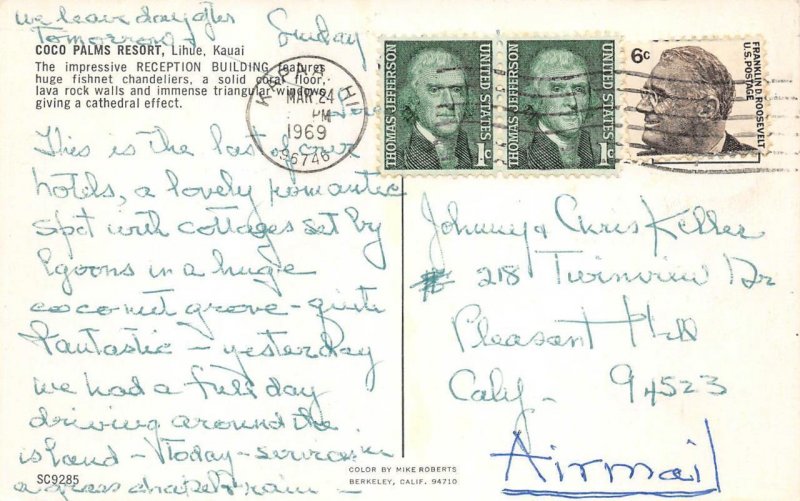 we leave
tomorrow. Sunday
COCO PALMS RESORT, Lihue, Kauai
The impressive RECEPTION BUILDING features
huge fishnet chandeliers, a solid coral floor,
lava rock walls and immense triangular windows
giving a cathedral effect.
KAPAA HI
MAR 24
PM
1969
96746
THOMAS JEFFERSON
UNITED STATES
1c
THOMAS JEFFERSON
UNITED STATES
1c
6c
FRANKLIN D. ROOSEVELT
U.S. POSTAGE
This is the last of our
hotels, a lovely romantic
spot with cottages set by
lgoons in a huge
coconut grove - quite
fantastic - yesterday
we had a full day
driving around the
island - Today - services in
a grass chapel - rain -
Johnny & Chris Keller
# 218 Twinview Dr
Pleasant Hill
Calif. 94523
Airmail
SC9285
COLOR BY MIKE ROBERTS
BERKELEY, CALIF. 94710